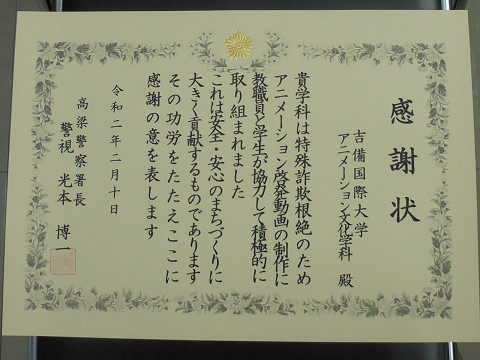 感謝状
吉備国際大学
アニメーション文化学科 殿
貴学科は特殊詐欺根絶のため
アニメーション啓発動画の制作に
教職員と学生が協力して積極的に
取り組まれました
これは安全・安心のまちづくりに
大きく貢献するものであります
その功労をたたえここに
感謝の意を表します
令和二年二月十日
高梁警察署長
警視 光本 博一